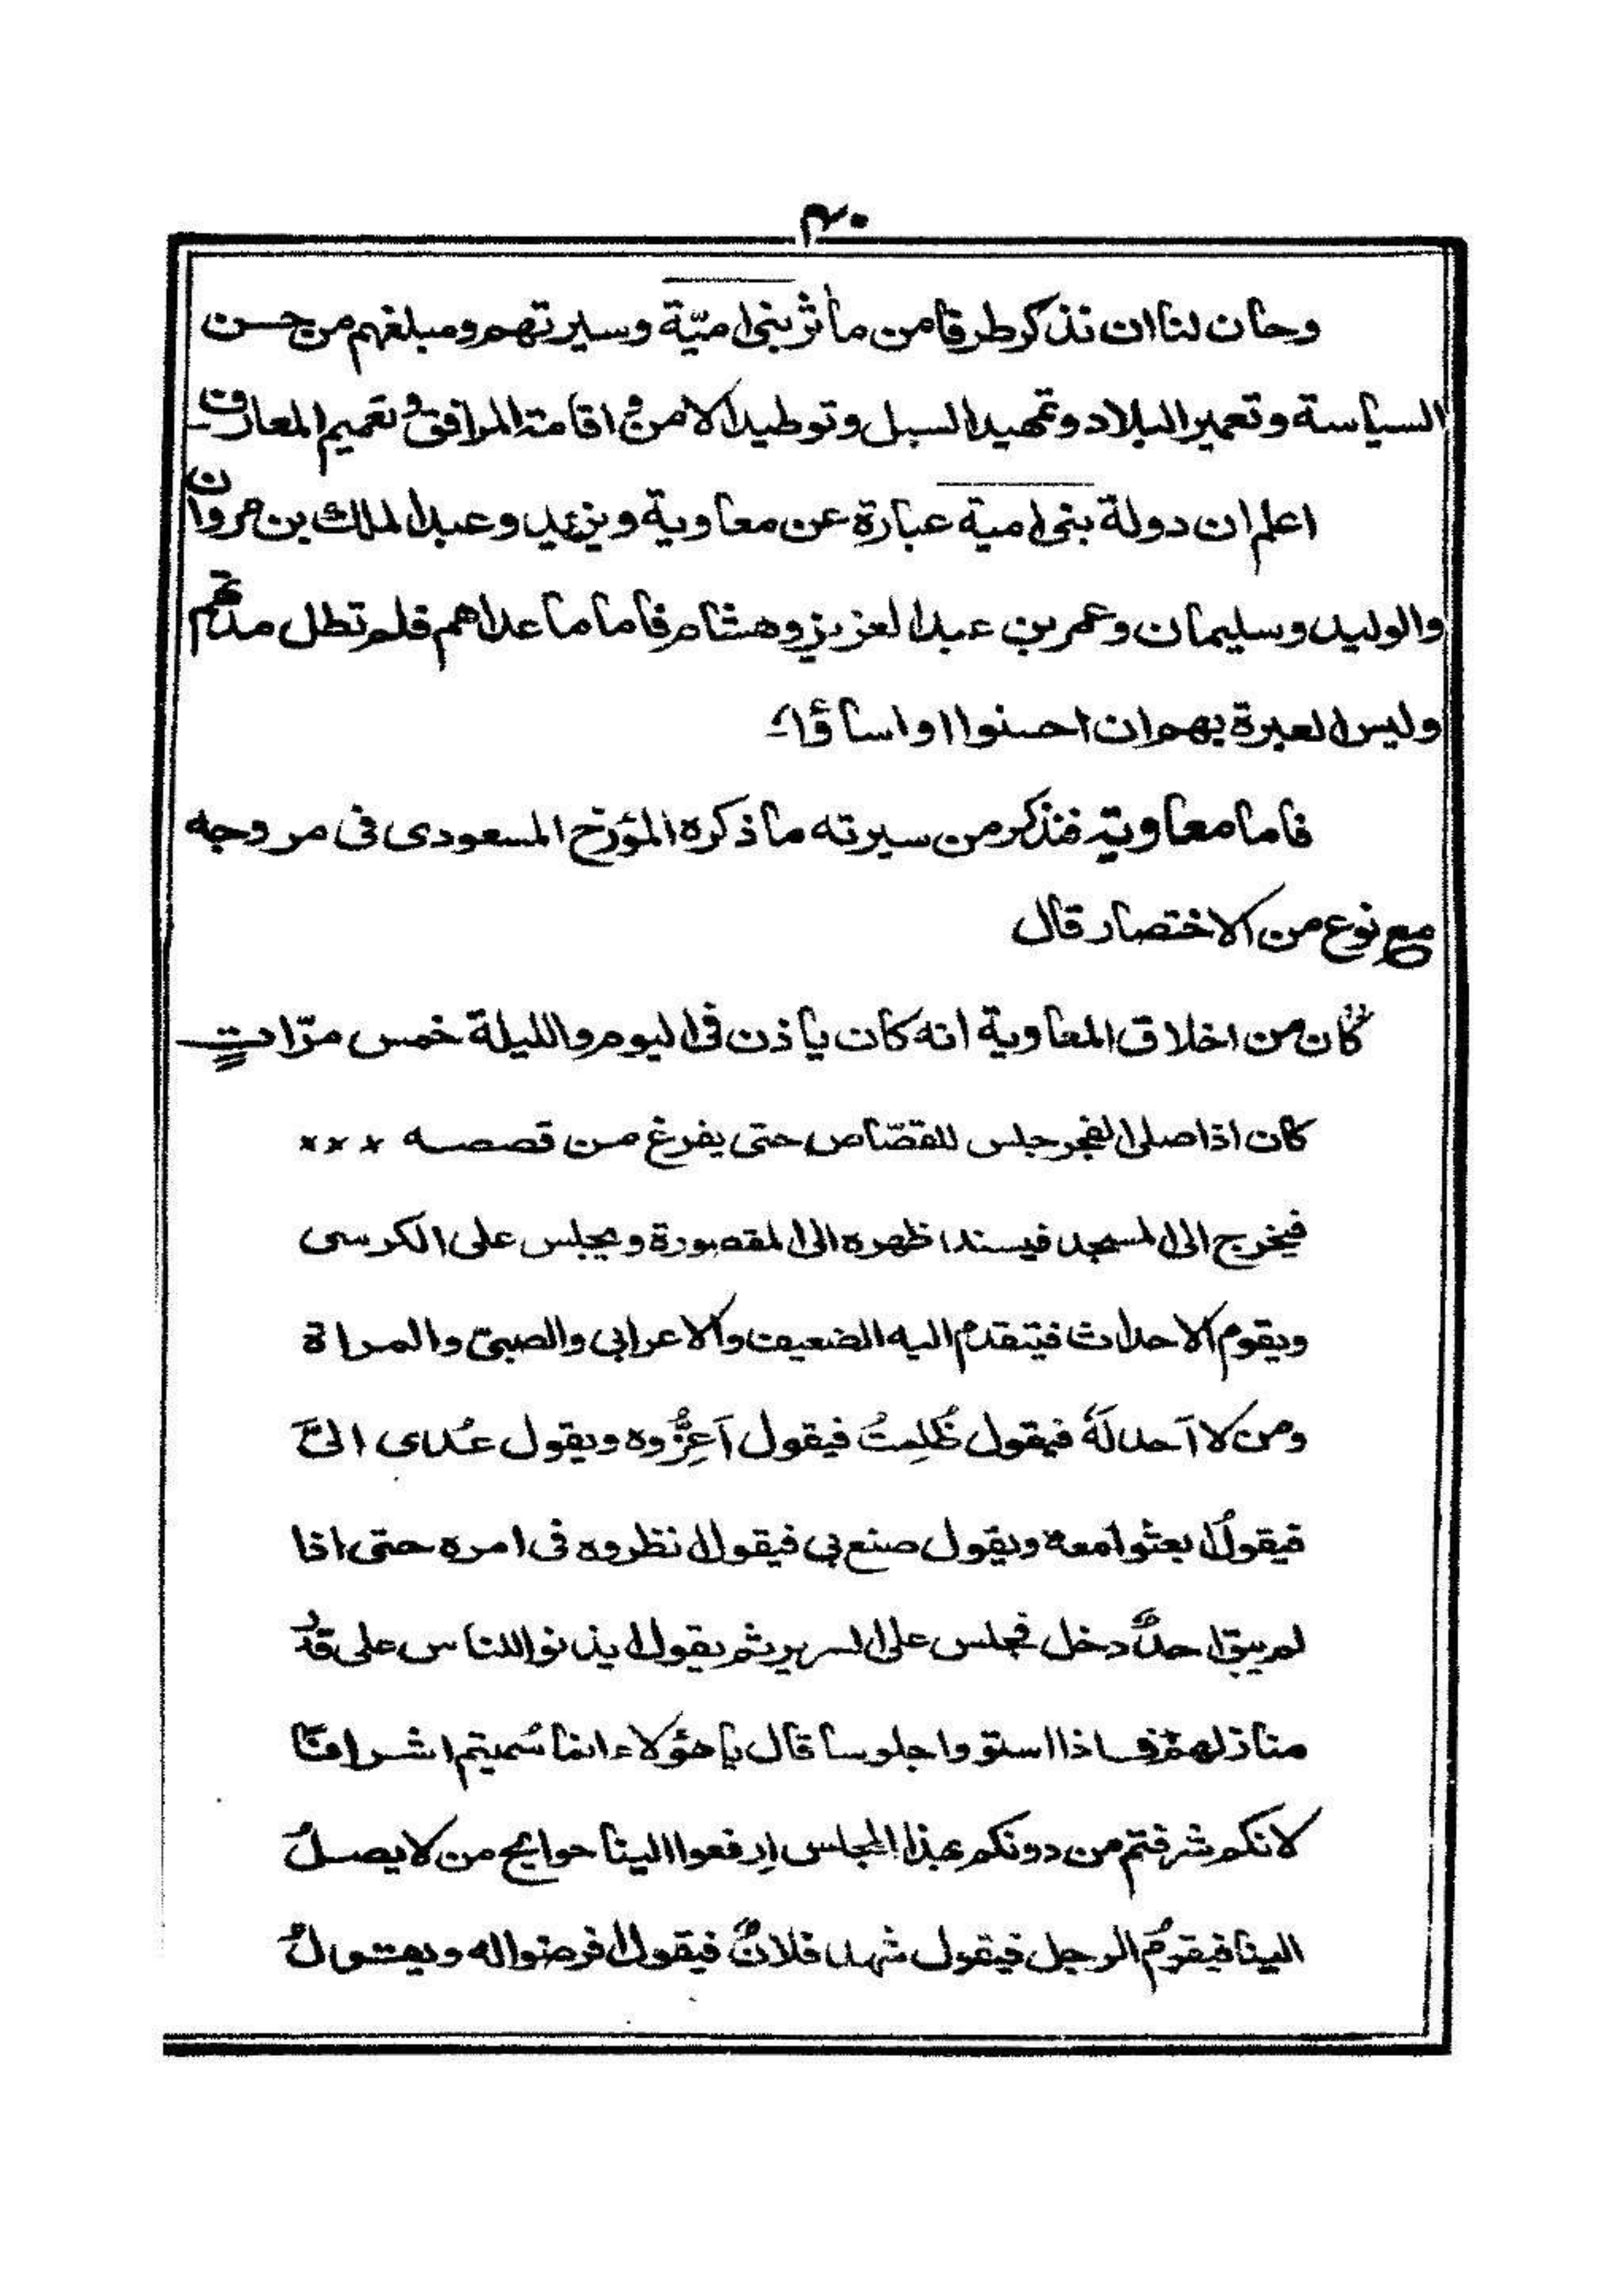 ۴۰
وحان لنا ان نذكر طرفا من مأثر بنى اميّة وسيرتهم ومبلغهم من حسن
السياسة وتعمير البلاد وتمهيد السبل وتوطيد الامن و اقامة المرافق و تعميم المعارف
اعلم ان دولة بنى امية عبارة عن معاوية ويزيد وعبد الملك بن مروان
والوليد وسليمان وعمر بن عبد العزيز وهشام فاما ما عداهم فلم تطل مدتهم
وليس العبرة بهم ان احسنوا او اساؤا
فاما معاوية فنذكر من سيرته ما ذكره المؤرخ المسعودى فى مروجه
مع نوع من الاختصار قال
كان من اخلاق المعاوية انه كان ياذن فى اليوم والليلة خمس مرّاتٍ
كان اذا صلى الفجر جلس للقصّاص حتى يفرغ من قصصه × × ×
فيخرج الى المسجد فيسند ظهره الى المقصورة ويجلس على الكرسى
ويقوم الاحداث فيتقدم اليه الضعيف والاعرابى والصبىّ والمراة
ومن لا اَحد لَهٗ فيقول ظُلِمتُ فيقول اَعِزُّوه ويقول عُدى الىَّ
فيقول ابعثوا معه ويقول صنع بى فيقول انظروه فى امره حتى اذا
لم يبق احدٌ دخل فجلس على السرير ثم يقول ايذنوا للناس على قدر
منازلهم فاذا استووا جلوسا قال يا هؤلاء انما سُميتم اشرافًا
لانكم شرفتم من دونكم بهذا المجلس ارفعوا الينا حوايج من لا يصلُ
الينا فيقومُ الرجل فيقول شهد فلانٌ فيقول افرضوا له ويقولُ